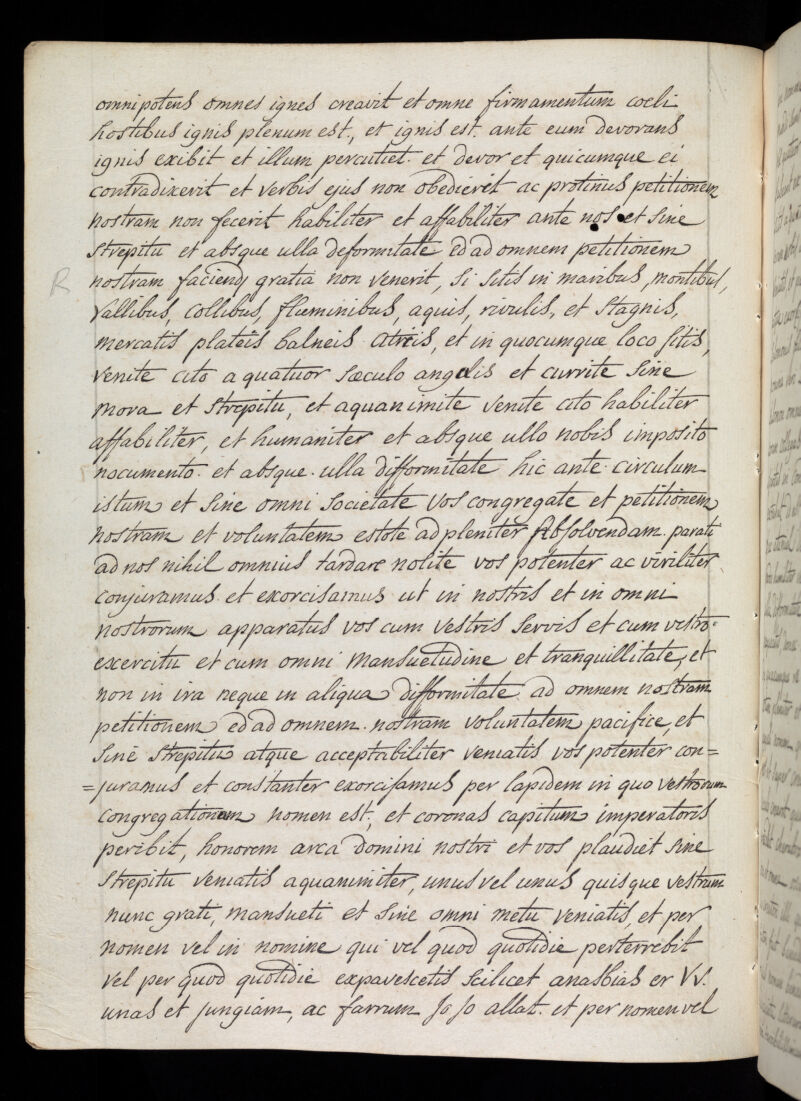 omnipotens omnes ignes creavit et omne firmamentum coeli
hostibus ignis plenum est., et ignis est. ante eum devorans
ignis exibit et illum percutiet. et devoret quicumque ei
contradixerit et verbis ejus non obedierit ac protinus petitionem
nostram non fecerit habiliter et affabiliter ante nos et sine
strepitu et absque ulla deformitate ed ad omnem petitionem
R nostram faciendj gratia non venerit, si sitis in maribus, montibus,
vallibus, collibus, fluminibus, aquis, rivulis, et stagnis,
mercatis plateis balneis atriis, et in quocumque loco sitis,
venite cito a quatuor sæculo angulis et currite sine
mora et strepitu, et aquanimite venite cito habiliter
affabiliter, et humaniter et absque ullo nobis imposito
nocumento. et absque. ulla difformitate hic ante. circulum
istum et sine omni societate vos congregate et petitionem
nostram et voluntatem estote ad pleniter absolvendam. parati
ad nos nihil omnius tardare nolite vos potenter ac viriliter
conjuramus. et exorcisamus ut in nostris et in omni
nostrorum apparatus vos cum vestris servis et cum vestro=
excercitu et cum omni mansuetudine et tranquillitate, et
non in ira neque in aliqua difformitate. ad omnem nostram
petitionem ed ad omnem. nostram voluntatem pacifice, et
sine strepitu atque acceptabiliter veniatis vos potenter con=
=juramus et constanter exorcisamus per lapidem in quo vestrorum
congregationem nomen est., et coronas capitum imperatoris
peribit, honorem arca domini nostri et vos plaudiet sine
strepitu veniatis aquanimiter, unus vel unus quisque vestrum
nunc grati, mansueti et sine omni metu veniatis, et per
nomen vel in nomine qui vel quod quotidie perterrebit
vel per quod quotidie expavescetis scilicet anasbias er VV.
unas et jungiam, ac farrum Jo Jo allat. et per nomen vel